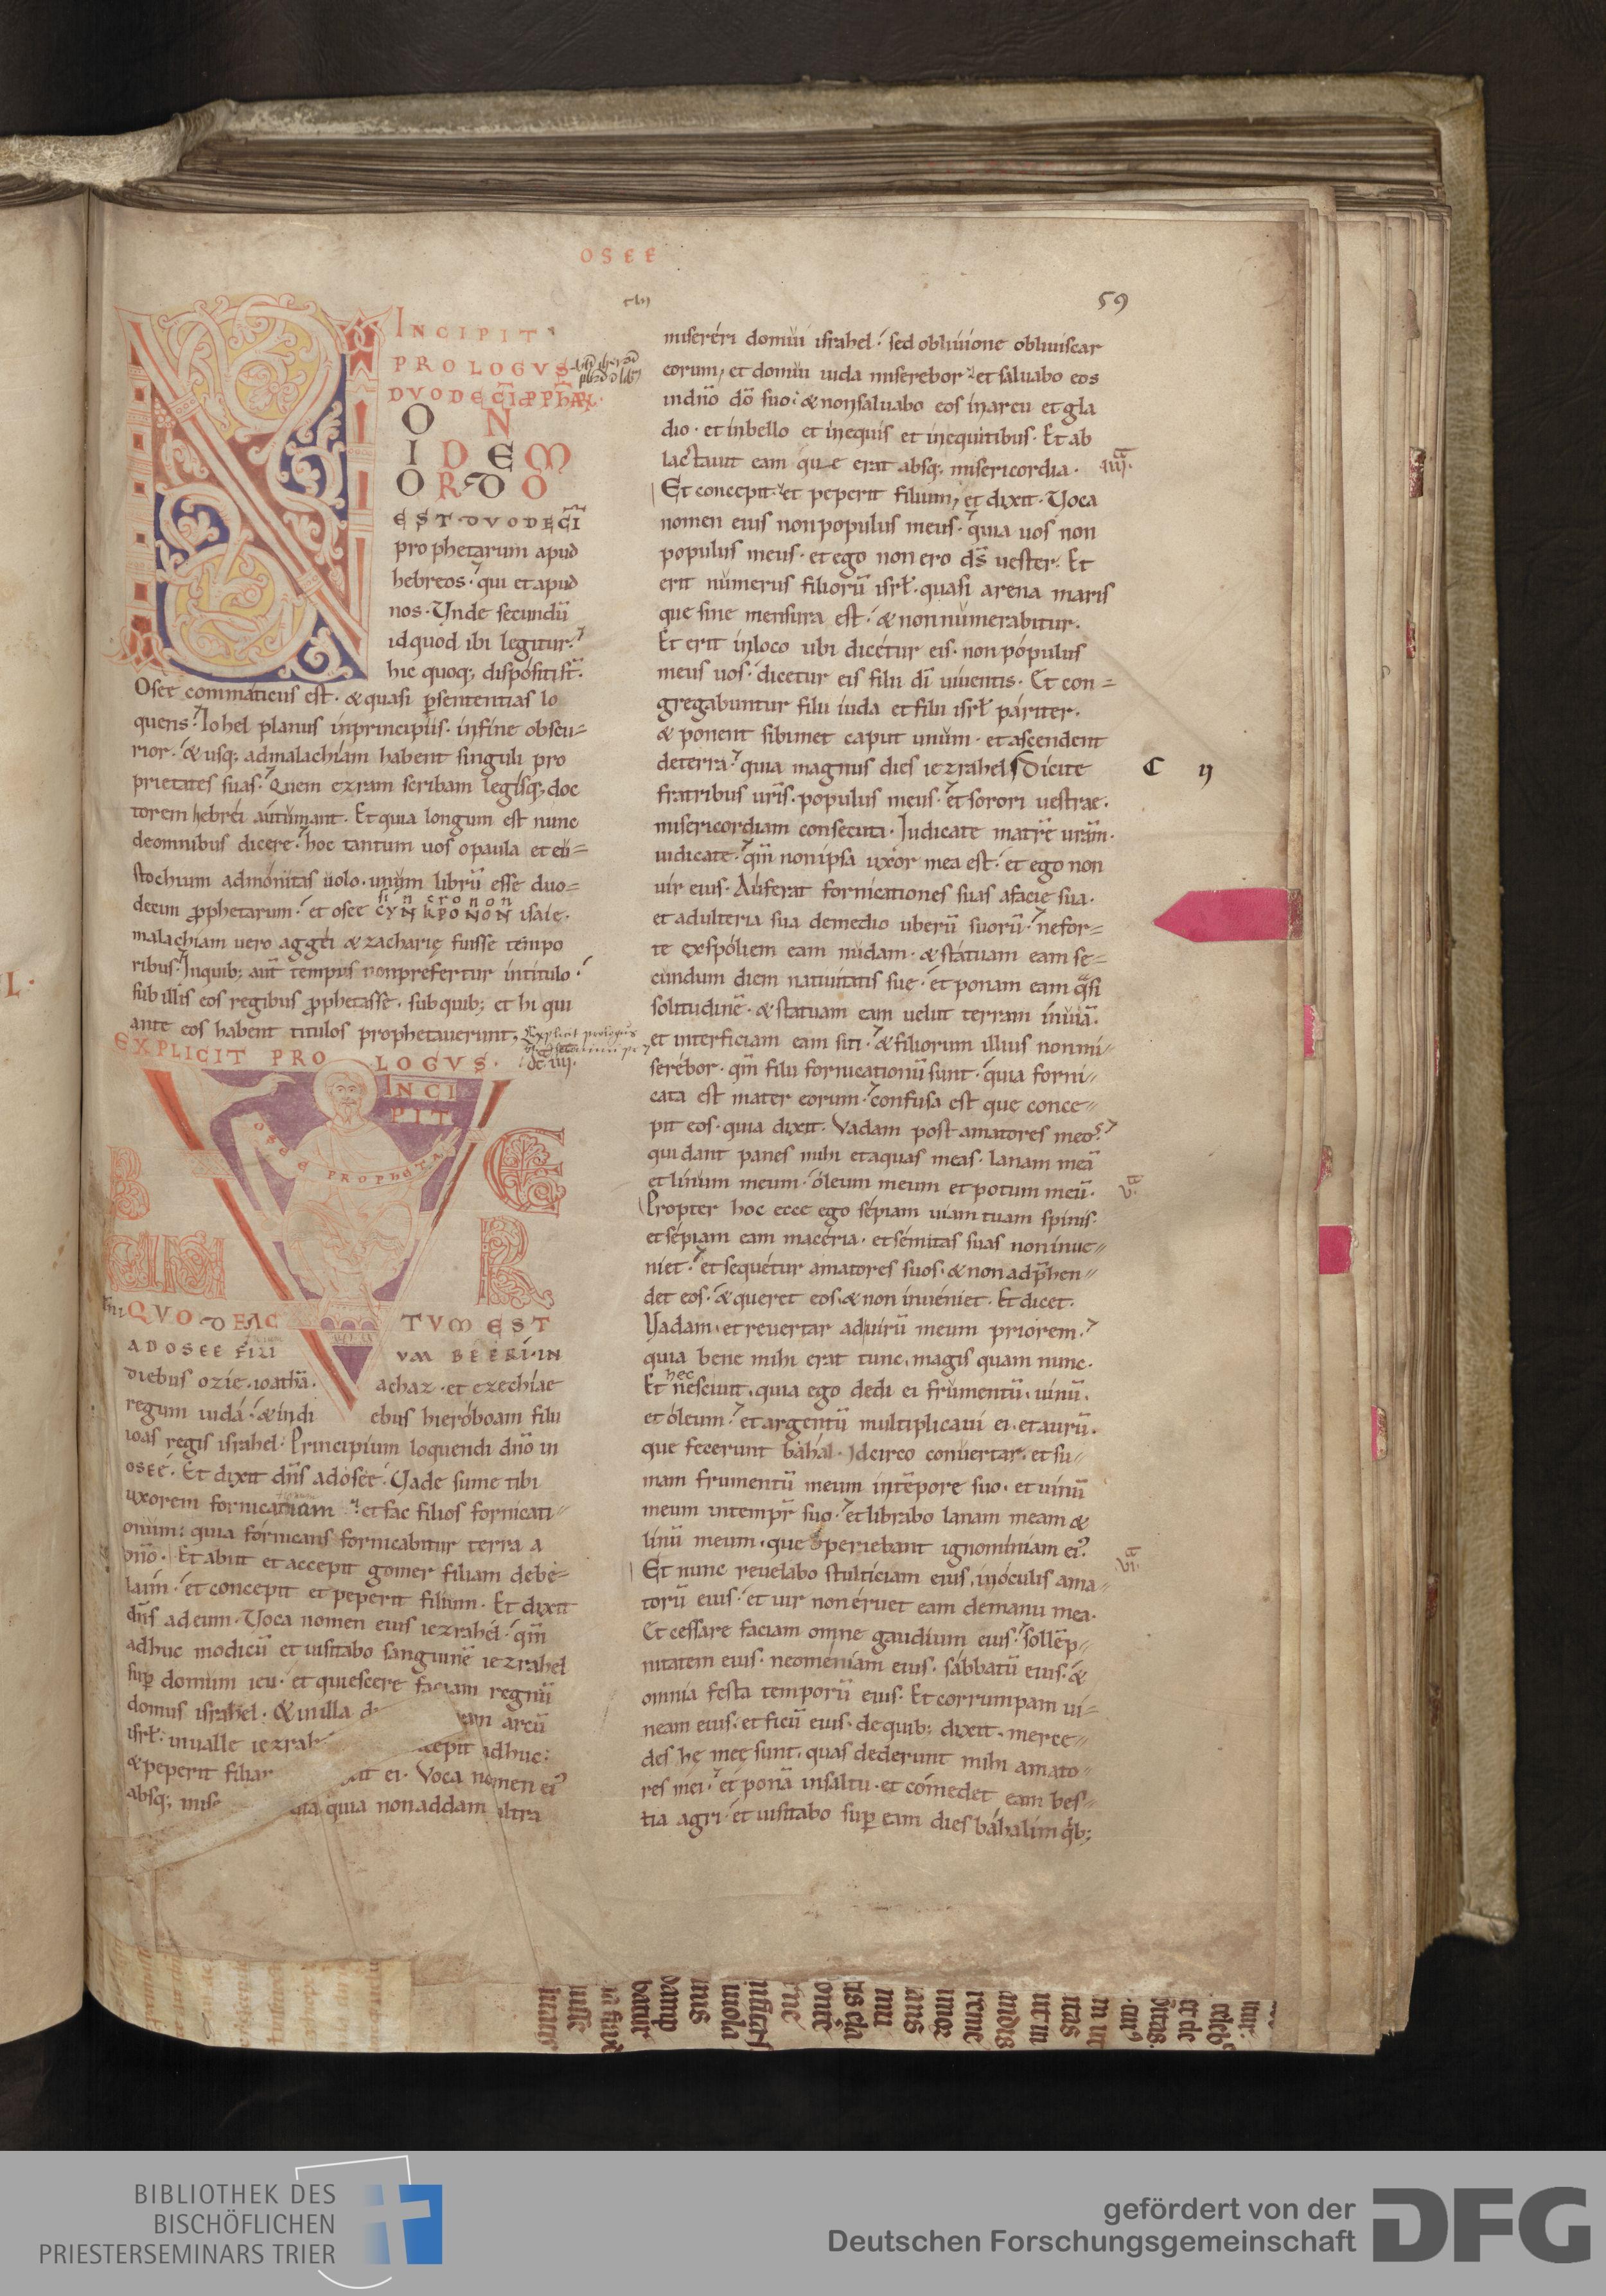 OSEE
59
INCIPIT
PROLOGVS
DVODECI͞ P͞PHAR̄
NON
IDEM
ORDO
EST DVODECI͞
prophetarum apud
hebreos· qui et apud
nos· Unde secundū
id quod ibi legitur·
hic quoq; dispositi st̄·
Osee commaticus est· & quasi p̱sententias lo
quens· Iohel planus in principiis· in fine obscu=
rior· & usq; ad malachiam habent singuli pro
prietates suas· Quem ezram scribam legisq; doc
torem hebrei autumant· Et quia longum est nunc
de omnibus dicere· hoc tantum uos o paula et eu=
stochium admonitas uolo· unum librū esse duo=
si n cronon
decim p̱phetarum· et osee CYNKPONON isaie·
malachiam uero aggei & zacharię fuisse tempo
ribus· In quib; aut̄ tempus non prefertur in titulo·
sub illis eos regibus p̱phetasse· sub quib; et hi qui
ante eos habent titulos prophetauerunt;
Explicit prologus
EXPLICIT PROLOGVS·
INCI
PIT
OSEE PROPHETA
VERBVM
DNI QVOD FACTVM EST
AD OSEE FILIVM BEERI· IN
diebus ozie· ioathā· achaz· et ezechiae
regum iuda· & in diebus hieroboam filii
ioas regis israhel· Principium loquendi dn̄o in
osee· Et dixit dn̄s ad osee· Uade sume tibi
uxorem fornicariam et fac filios fornicati=
onum: quia fornicans fornicabitur terra a
dn̄o· Et abiit et accepit gomer filiam debe=
laim· et concepit et peperit filium· Et dixit
dn̄s ad eum· Uoca nomen eius iezrahel· qm̄
adhuc modicū et uisitabo sanguinē iezrahel
sup̱ domum ieu· et quiescere faciam regnū
domus israhel· & in illa d am arcū
isrl̄· in ualle iezrah cepit adhuc:
& peperit filiam it ei· Uoca nomen ei⁹
absq; mise quia non addam ultra
misereri domui israhel· sed obliuione obliuiscar
eorum, et domui iuda miserebor et saluabo eos
in dn̄o dō suo· & non saluabo eos in arcu et gla
dio· et in bello et in equis et in equitibus· Et ab
lactauit eam que erat absq; misericordia·
Et concepit et peperit filium, et dixit· Uoca
nomen eius non populus meus· quia uos non
populus meus· et ego non ero ds̄ uester· Et
erit numerus filiorū isrl̄· quasi arena maris
que sine mensura est· & non numerabitur·
Et erit in loco ubi dicetur eis· non populus
meus uos· dicetur eis filii dī uiuentis· Et con=
gregabuntur filii iuda et filii isrl̄ pariter·
& ponent sibimet caput unum· et ascendent
de terra· quia magnus dies iezrahel Dicite
C ij
fratribus ur̄is· populus meus· et sorori uestrae·
misericordiam consecuta· Iudicate matrē urām·
iudicate· qm̄ non ipsa uxor mea est· et ego non
uir eius· Auferat fornicationes suas a facie sua·
et adulteria sua de medio uberū suorū· ne for=
te exspoliem eam nudam· & statuam eam se=
cundum diem natiuitatis sue· et ponam eam q̄si
solitudinē· & statuam eam uelut terram inuiā·
et interficiam eam siti· & filiorum illius non mi=
serebor· qm̄ filii fornicationū sunt· quia forni=
cata est mater eorum· confusa est que conce=
pit eos· quia dixit· Uadam post amatores meos·
qui dant panes mihi et aquas meas· lanam meā
et linum meum· oleum meum et potum meū·
Propter hoc ecce ego sepiam uiam tuam spinis·
et sepiam eam maceria· et semitas suas non inue=
niet· et sequetur amatores suos· & non adp̄hen=
det eos· & queret eos· & non inueniet· Et dicet·
Uadam· et reuertar ad uirū meum priorem·
quia bene mihi erat tunc, magis quam nunc·
hec
Et nesciuit, quia ego dedi ei frumentū, uinū,
et oleum· et argentū multiplicaui ei· et aurū·
que fecerunt bahal· Idcirco conuertar, et su=
mam frumentū meum in tēpore suo· et uinū
meum in temp̄r suo· et librabo lanam meam &
linū meum, que operiebant ignominiam ei⁹
Et nunc reuelabo stulticiam eius, in oculis ama=
torū eius· et uir non eruet eam de manu mea·
Et cessare faciam omne gaudium eius· sollēp=
nitatem eius· neomeniam eius· sabbatū eius· &
omnia festa temporū eius· Et corrumpam ui=
neam eius· et ficū eius· de quib; dixit· merce=
des hę męę sunt, quas dederunt mihi amato=
res mei· et ponā in saltu· et comedet eam bes=
tia agri· et uisitabo sup̱ eam dies bahalim q̇b;
BIBLIOTHEK DES
BISCHÖFLICHEN
PRIESTERSEMINARS TRIER
gefördert von der
Deutschen Forschungsgemeinschaft
DFG